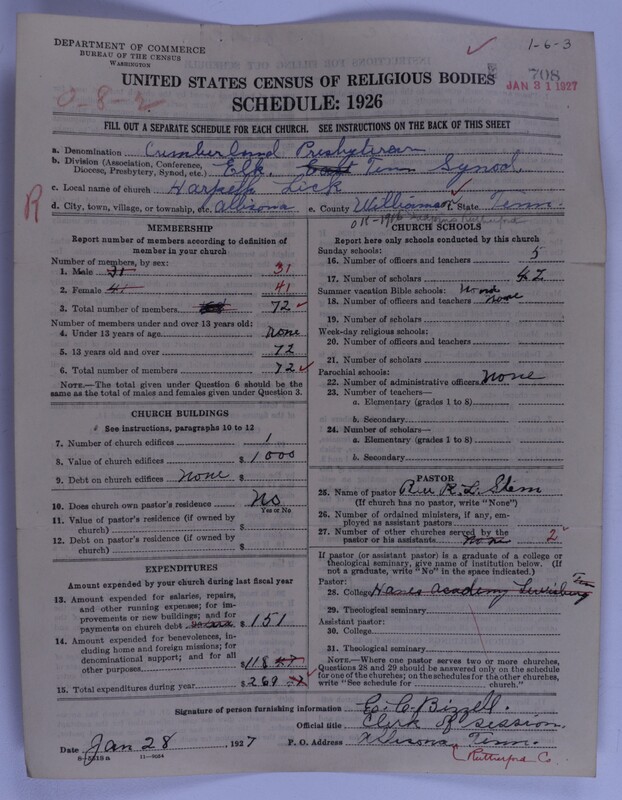 DEPARTMENT OF COMMERCE
BUREAU OF THE CENSUS
WASHINGTON
1-6-3
708
JAN 31 1927
UNITED STATES CENSUS OF RELIGIOUS BODIES
SCHEDULE: 1926
0-8-2
FILL OUT A SEPARATE SCHEDULE FOR EACH CHURCH. SEE INSTRUCTIONS ON THE BACK OF THIS SHEET
a. Denomination Cumberland Presbyterian
b. Division (Association, Conference, Diocese, Presbytery, Synod, etc.) Elk, Tenn Synod
c. Local name of church Harpeth Lick
R
d. City, town, village, or township, etc. Allisona e. County Williamson f. State Tenn.
MEMBERSHIP
Report number of members according to definition of
member in your church
Number of members, by sex:
1. Male 31 31
2. Female 41 41
3. Total number of members 72
Number of members under and over 13 years old:
4. Under 13 years of age None
5. 13 years old and over 72
6. Total number of members 72
NOTE.—The total given under Question 6 should be
same as the total of males and females given under Question 3.
CHURCH BUILDINGS
See instructions, paragraphs 10 to 12
7. Number of church edifices 1
8. Value of church edifices $ 1000
9. Debt on church edifices None $
10. Does church own pastor's residence? No
Yes or No
11. Value of pastor's residence (if owned by
church) $
12. Debt on pastor's residence (if owned by
church) $
EXPENDITURES
Amount expended by your church during last fiscal year
13. Amount expended for salaries, repairs,
and other running expenses; for im-
provements or new buildings; and for
payments on church debt $ 151
14. Amount expended for benevolences, in-
cluding home and foreign missions; for
denominational support; and for all
other purposes $ 118
15. Total expenditures during year $ 269
CHURCH SCHOOLS
Report here only schools conducted by this church
Sunday schools:
16. Number of officers and teachers 5
17. Number of scholars 42
Summer vacation Bible schools:
18. Number of officers and teachers none
19. Number of scholars
Week-day religious schools:
20. Number of officers and teachers
21. Number of scholars
Parochial schools:
22. Number of administrative officers None
23. Number of teachers—
a. Elementary (grades 1 to 8)
b. Secondary
24. Number of scholars—
a. Elementary (grades 1 to 8)
b. Secondary
PASTOR
25. Name of pastor Rev R. L. Stem
(If church has no pastor, write "None")
26. Number of ordained ministers, if any, em-
ployed as assistant pastors
27. Number of other churches served by the
pastor or his assistants None 2
If pastor (or assistant pastor) is a graduate of a college or
theological seminary, give name of institution below. (If
not a graduate, write "No" in the space indicated.)
Pastor:
28. College Hanes Academy Lewisburg Tenn
29. Theological seminary
Assistant pastor:
30. College
31. Theological seminary
NOTE.—Where one pastor serves two or more churches,
Questions 28 and 29 should be answered only on the schedule
for one of the churches; on the schedules for the other churches,
write "See schedule for church."
Signature of person furnishing information E. C. Bizzell.
Official title Clerk of session.
Date Jan 28, 1927 P. O. Address Allisona, Tenn.
8-5313a 11-8034
Rutherford Co.